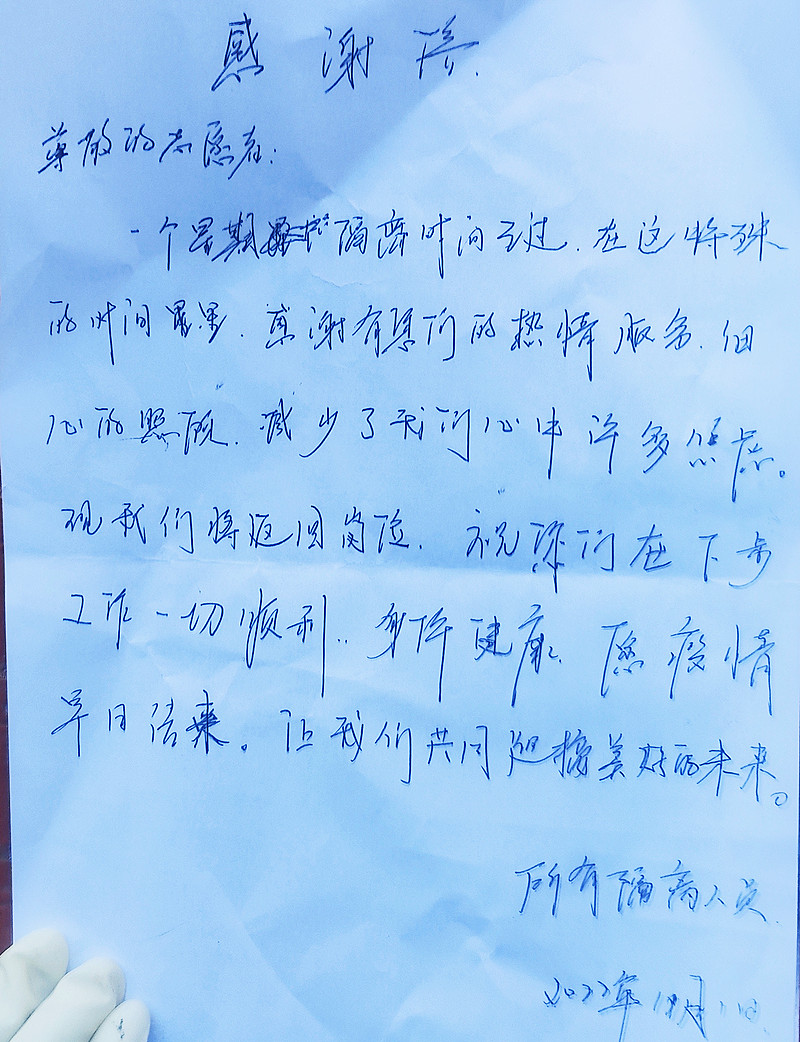 感谢信
尊敬的志愿者:
一个星期隔离时间已过,在这特殊
的时间里,感谢有您们的热情服务,细
心的照顾,减少了我们心中许多焦虑。
现我们将返回岗位,祝您们在下步
工作一切顺利,身体健康,愿疫情
早日结束。让我们共同迎接美好的未来。
所有隔离人员
2022年